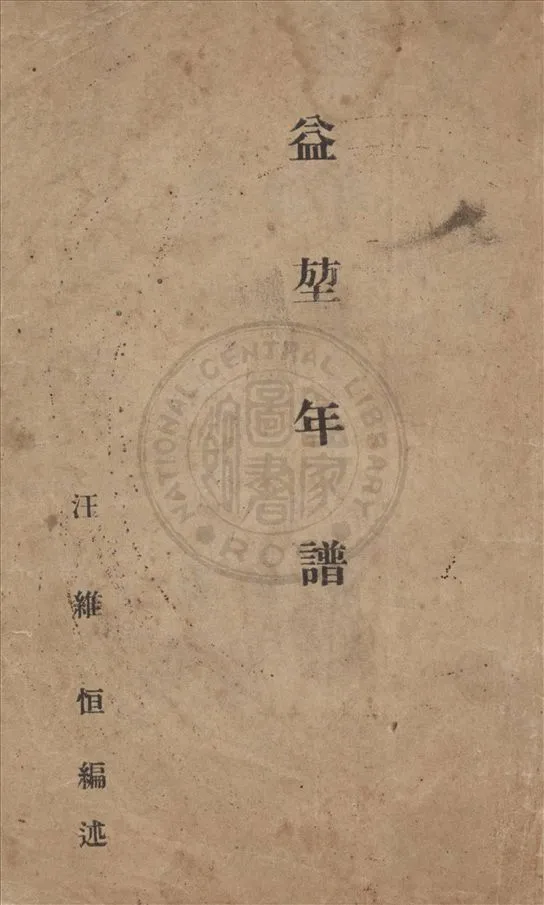 益堃年譜
汪維恒編述
NATIONAL CENTRAL LIBRARY
國家圖書館
R.O.C.